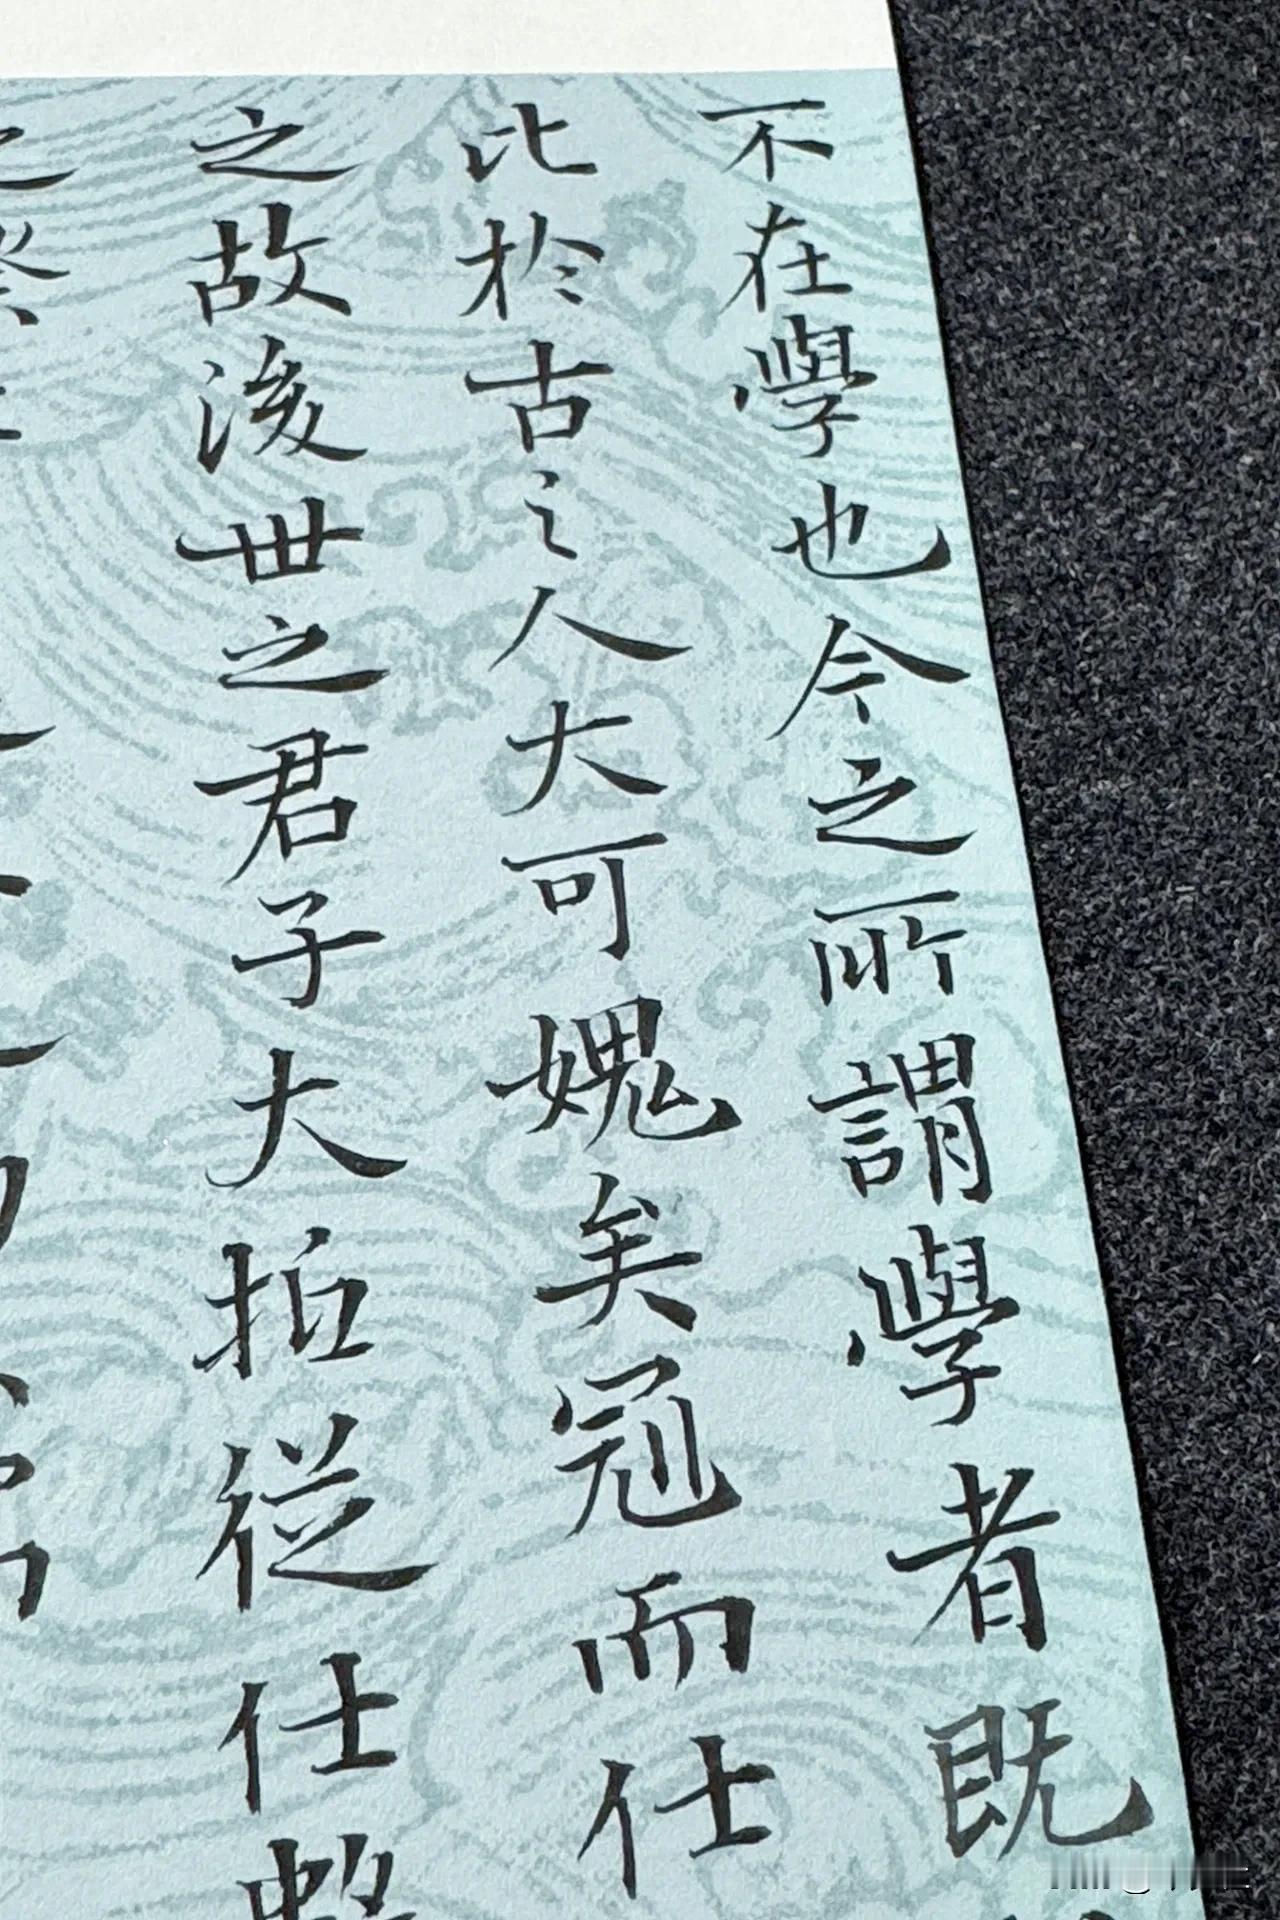 不在學也今之所謂學者既
比於古之人大可媿矣冠而仕
之故後世之君子大抵從仕